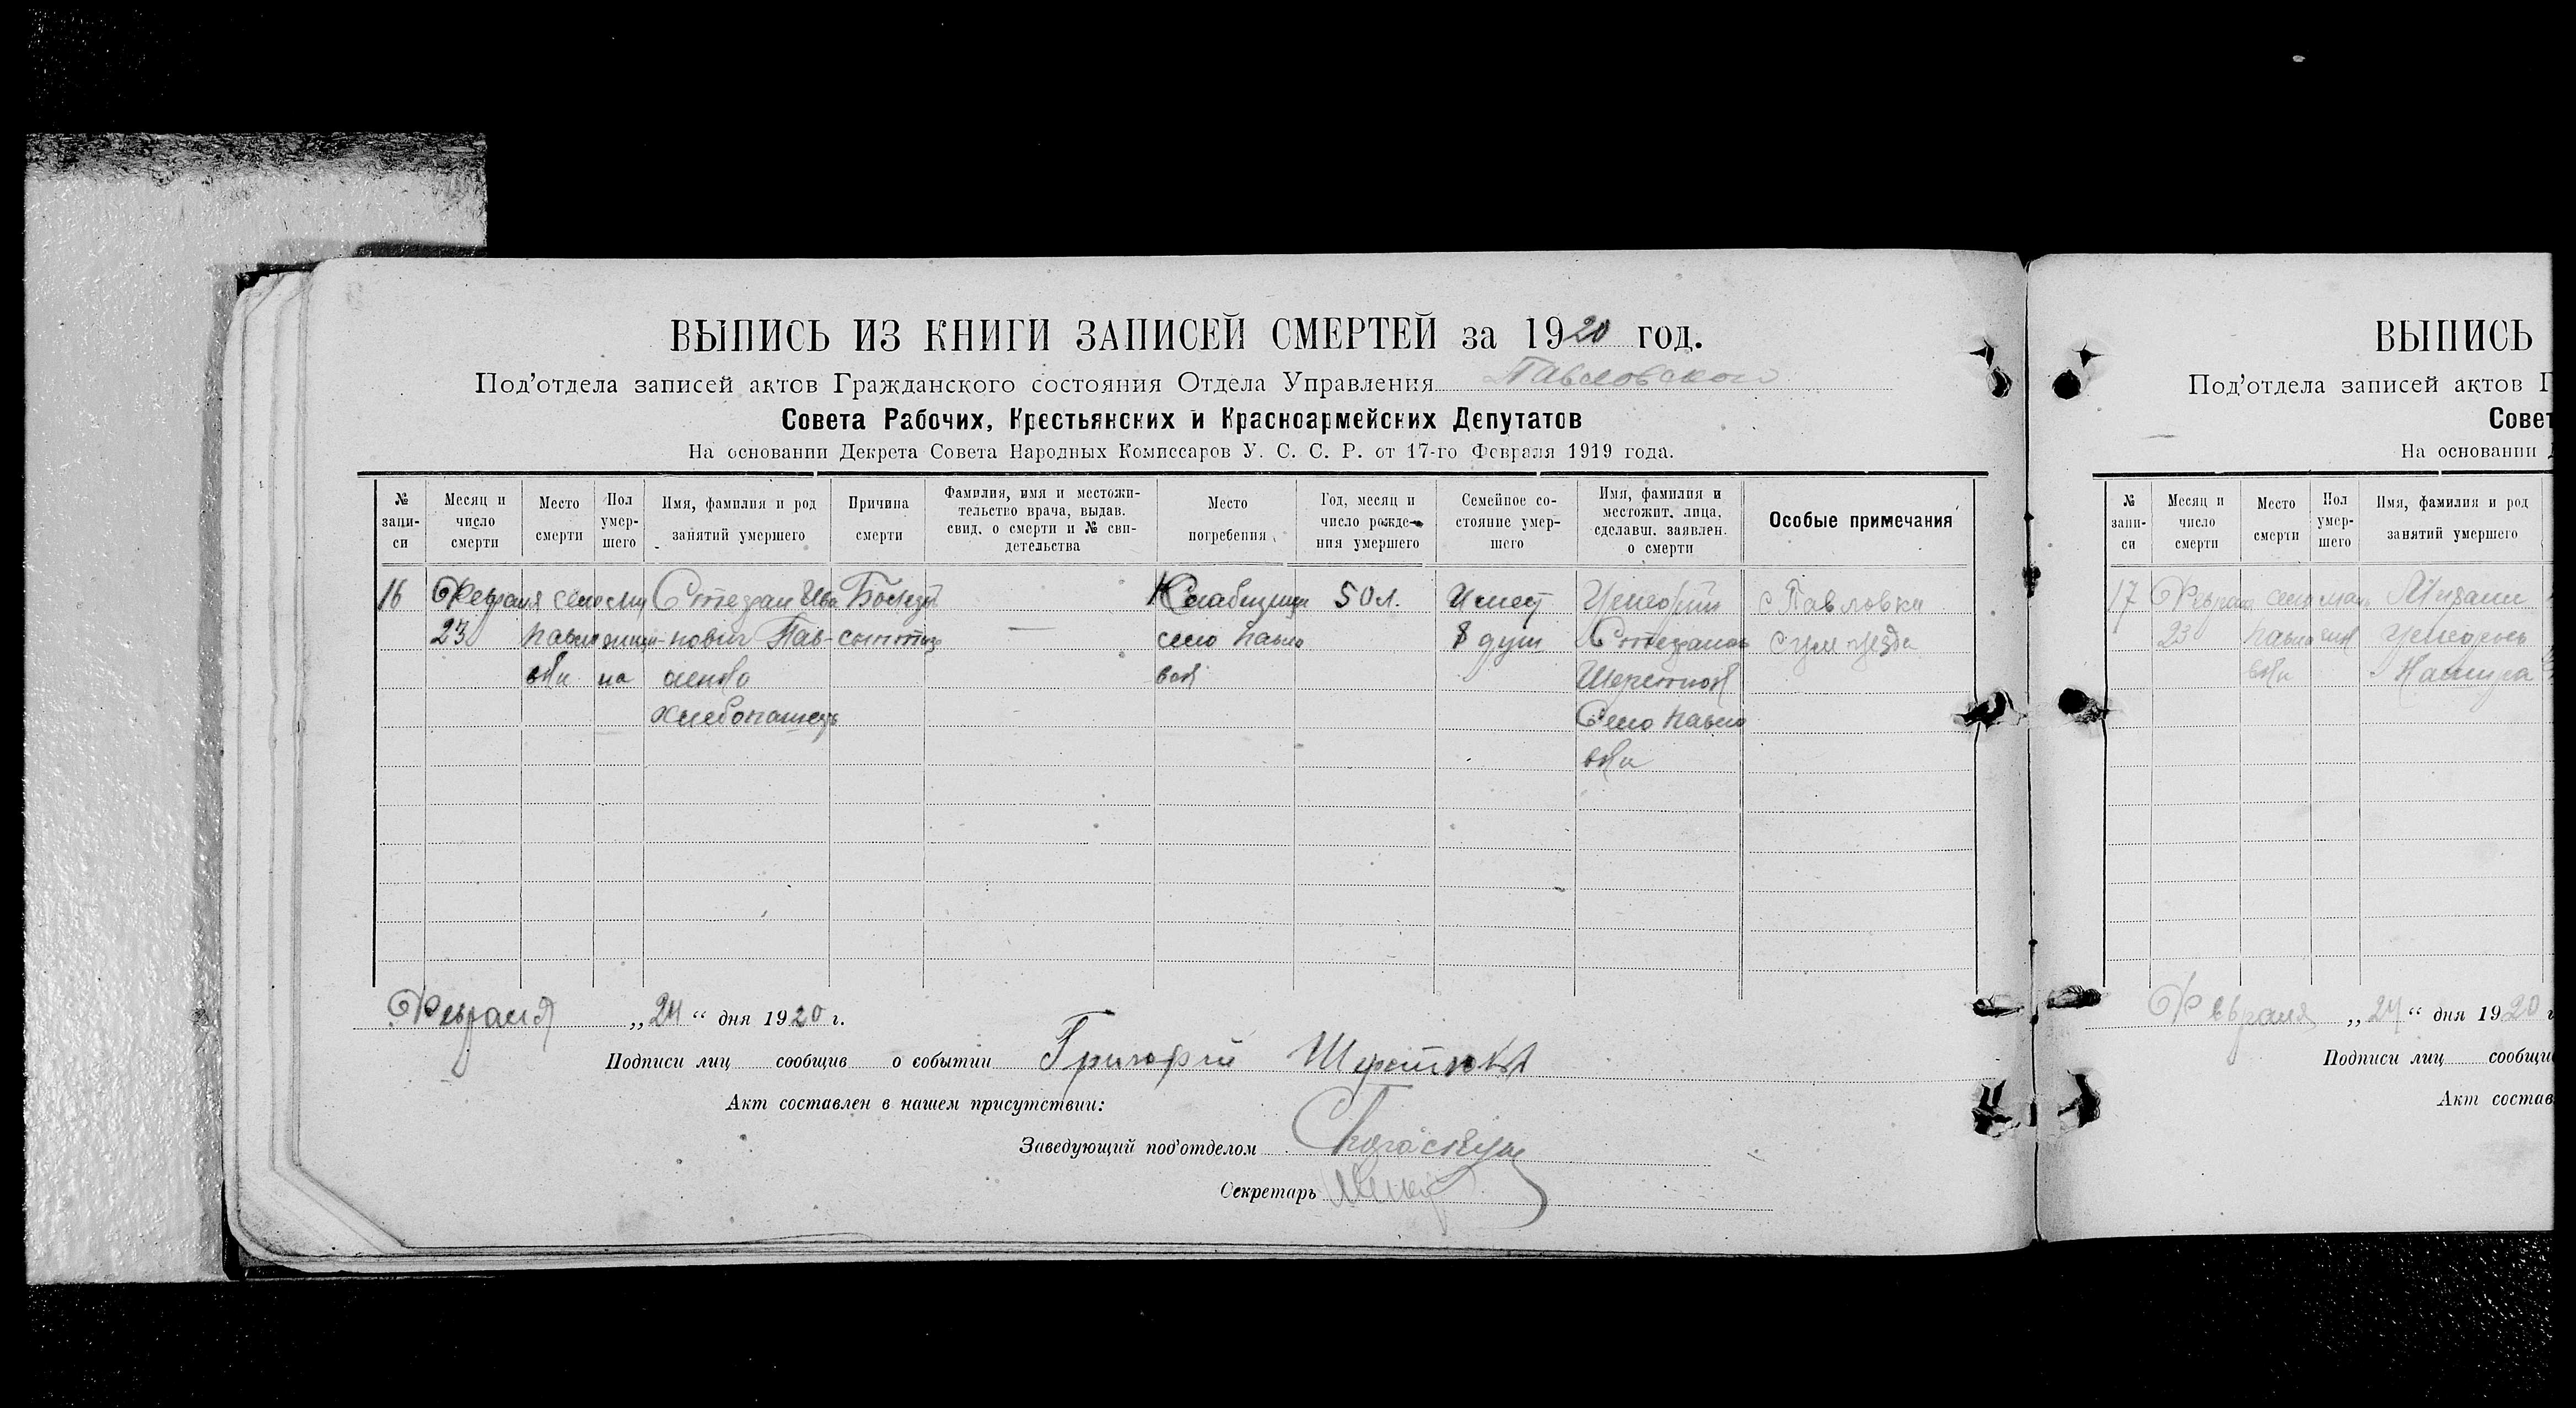 ВЫПИСЬ ИЗ КНИГИ ЗАПИСЕЙ СМЕРТЕЙ за 1920 год.
Под'отдела записей актов Гражданского состояния Отдела Управления Павловского
Совета Рабочих, Крестьянских и Красноармейских Депутатов
На основании Декрета Совета Народных Комиссаров У. С. С. Р. от 17-го Февраля 1919 года.
№ запи-си
Месяц и число смерти
Место смерти
Пол умер-шего
Имя, фамилия и род занятий умершего
Причина смерти
Фамилия, имя и местожи-тельство врача, выдав. свид. о смерти и № сви-детельства
Место погребения
Год, месяц и число рожде-ния умершего
Семейное со-стояние умер-шего
Имя, фамилия и местожит. лица, сделавш. заявлен. о смерти
Особые примечания
16 Февраля село Стефан Ива Кладбище 50 л. Имеет с Павловки
23 Павло нович Пав- село Павло 8 душ Стефанов
вки на ленко вки
Хлебопашец Село Павло
вки
Февраля „24“ дня 1920 г.
Подписи лиц сообщив о событии Григорий
Акт составлен в нашем присутствии:
Заведующий под'отделом
Секретарь
ВЫПИСЬ
Под'отдела записей актов Г
Совет
На основании
№ запи-си
Месяц и число смерти
Место смерти
Пол умер-шего
Имя, фамилия и род занятий умершего
17 Февраля село
23 Павло
вки
Февраля „24“ дня 1920 г
Подписи лиц сообщи
Акт состав